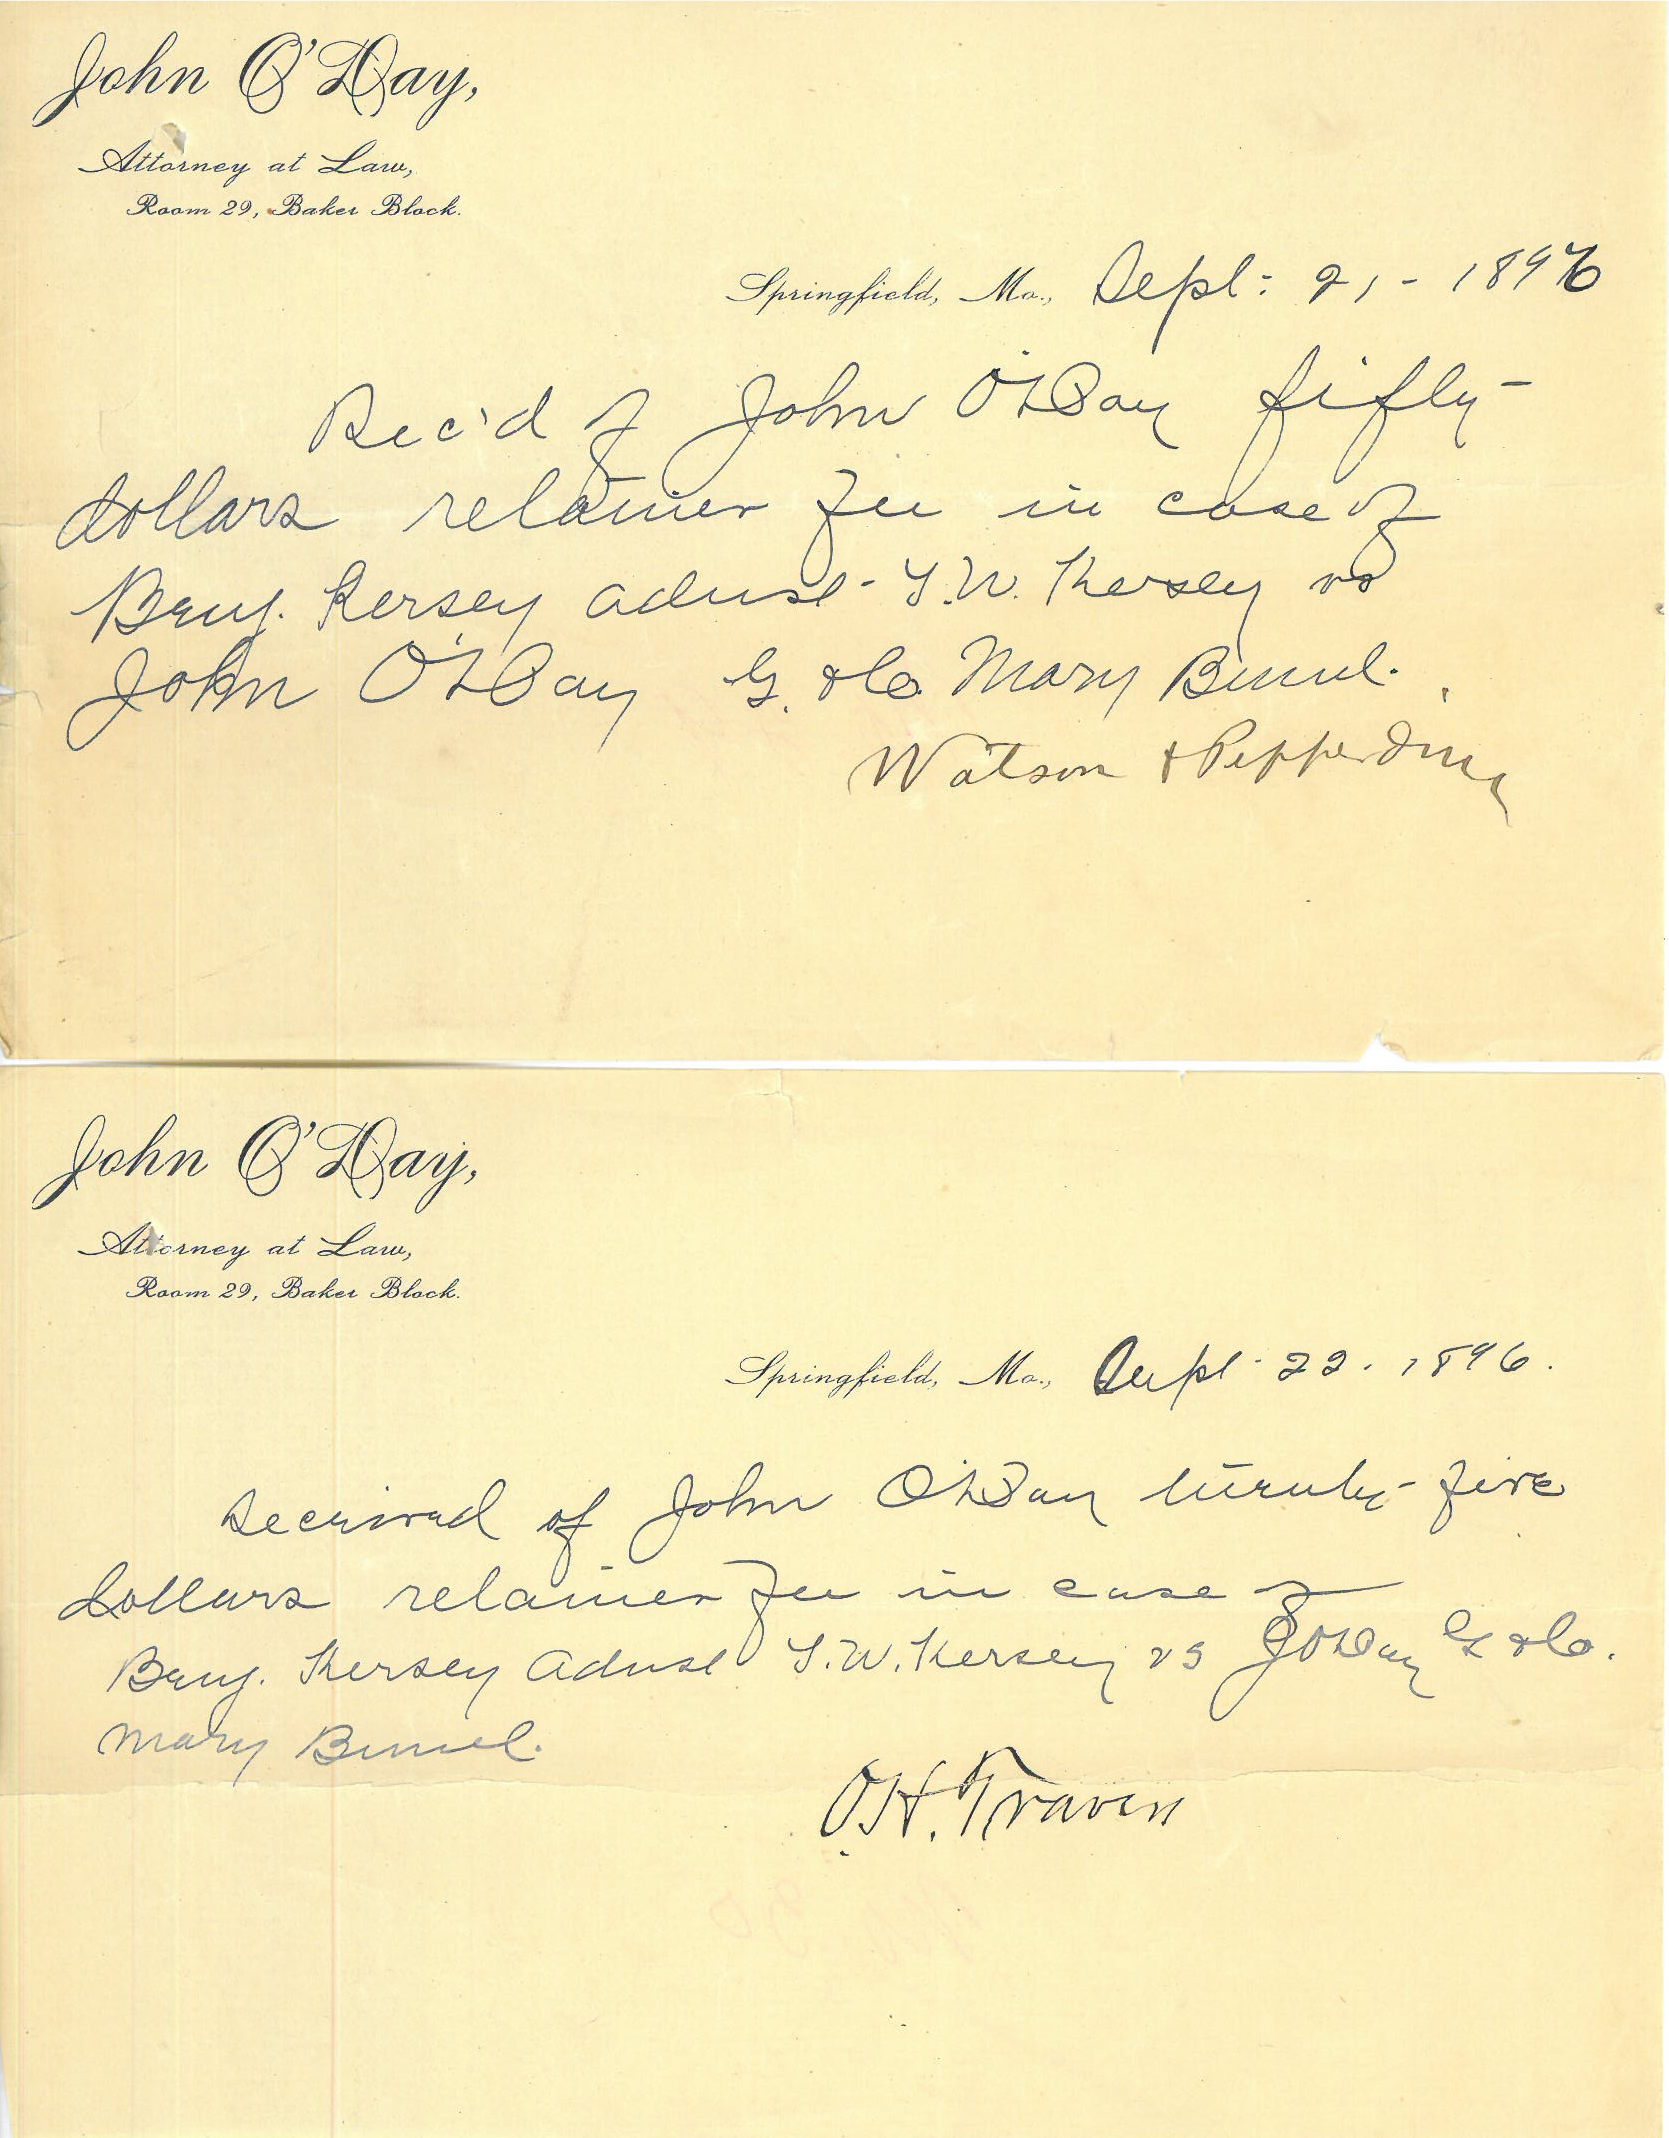 John O'Day,
Attorney at Law,
Room 29, Baker Block.
Springfield, Mo., Sept: 21 - 1896
Rec'd of John O'Day fifty
dollars retainer fee in case of
Benj. Kersey admst T.W. Kersey vs
John O'Day G. & Co Mary
Watson & Pepperdine
John O'Day,
Attorney at Law,
Room 29, Baker Block.
Springfield, Mo., Sept 22. 1896.
Received of John O'Day twenty-five
dollars retainer fee in case of
Benj. Kersey admst T.W. Kersey vs J O'Day G & Co.
Mary
O.H. Travers